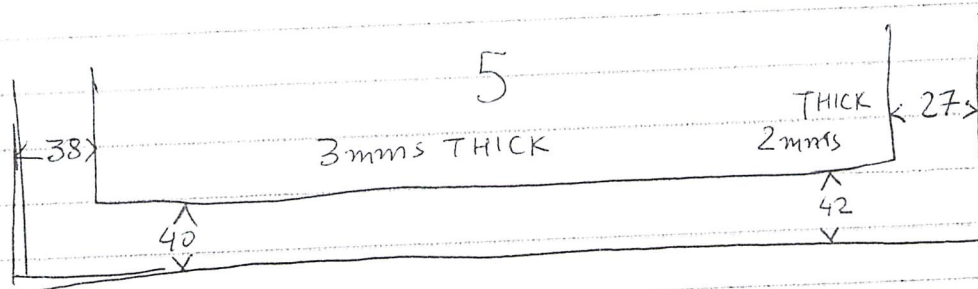 5
THICK 27
38 3mms THICK 2mms
42
40